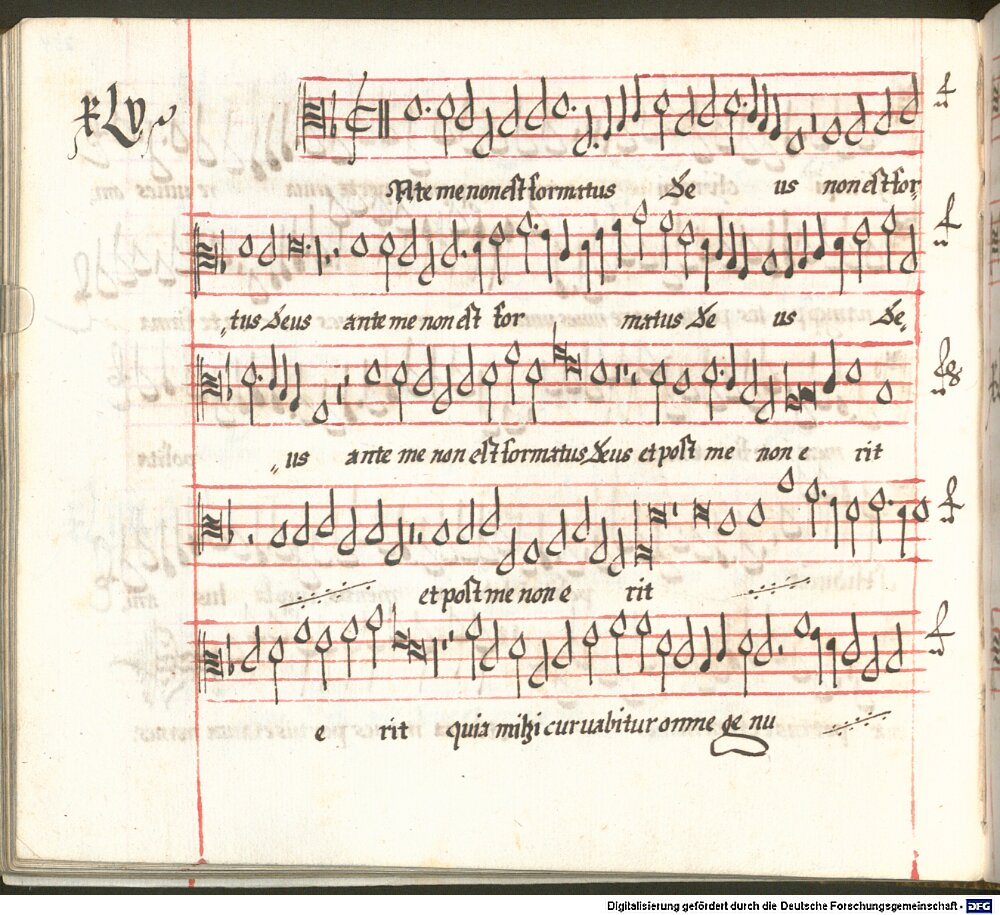 xLv
Ante me non est formatus De us non est for,
,tus Deus ante me non est for matus De us De,
,,us ante me non est formatus Deus et post me non e rit
et post me non e rit
e rit quia mihi curvabitur omne genu
Digitalisierung gefördert durch die Deutsche Forschungsgemeinschaft - DFG